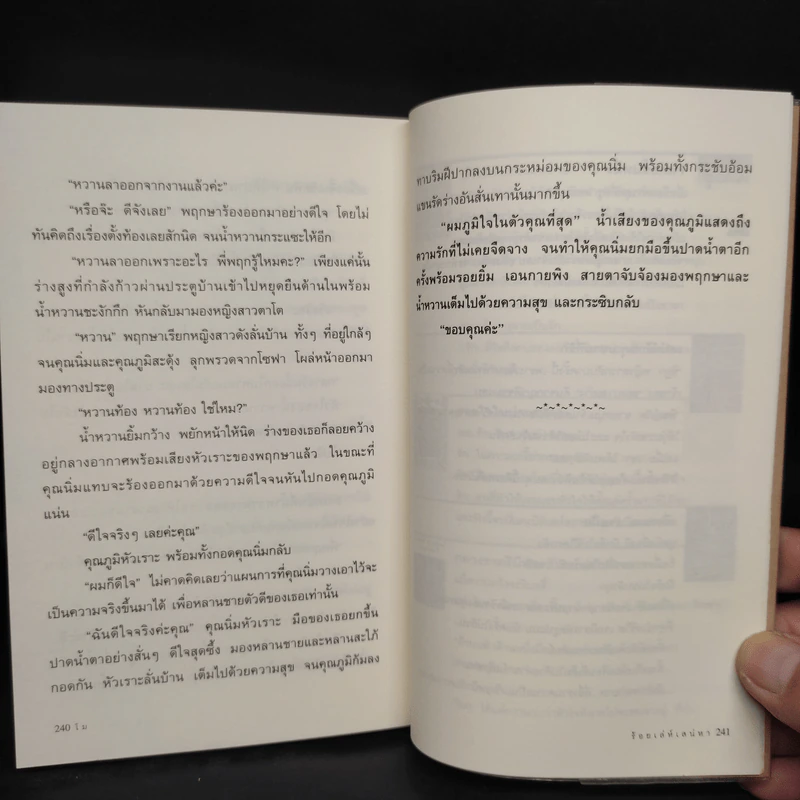 "หวานลาออกจากงานแล้วค่ะ"
"หรือจ๊ะ ดีจังเลย" พฤกษาร้องออกมาอย่างดีใจ โดยไม่
ทันคิดถึงเรื่องตั้งท้องเลยสักนิด จนน้ำหวานกระแซะให้อีก
"หวานลาออกเพราะอะไร พี่พฤกรู้ไหมคะ?" เพียงแค่นั้น
ร่างสูงที่กำลังก้าวผ่านประตูบ้านเข้าไปหยุดยืนด้านในพร้อม
น้ำหวานชะงักกึก หันกลับมามองหญิงสาวตาโต
"หวาน" พฤกษาเรียกหญิงสาวดังลั่นบ้าน ทั้งๆ ที่อยู่ใกล้ๆ
จนคุณนิ่มและคุณภูมิสะดุ้ง ลุกพรวดจากโซฟา โผล่หน้าออกมา
มองทางประตู
"หวานท้อง หวานท้อง ใช่ไหม?"
น้ำหวานยิ้มกว้าง พยักหน้าให้นิด ร่างของเธอก็ลอยคว้าง
อยู่กลางอากาศพร้อมเสียงหัวเราะของพฤกษาแล้ว ในขณะที่
คุณนิ่มแทบจะร้องออกมาด้วยความดีใจจนหันไปกอดคุณภูมิ
แน่น
"ดีใจจริงๆ เลยค่ะคุณ"
คุณภูมิหัวเราะ พร้อมทั้งกอดคุณนิ่มกลับ
"ผมก็ดีใจ" ไม่คาดคิดเลยว่าแผนการที่คุณนิ่มวางเอาไว้จะ
เป็นความจริงขึ้นมาได้ เพื่อหลานชายตัวดีของเธอเท่านั้น
"ฉันดีใจจริงค่ะคุณ" คุณนิ่มหัวเราะ มือของเธอยกขึ้น
ปาดน้ำตาอย่างสั่นๆ ดีใจสุดซึ้ง มองหลานชายและหลานสะใภ้
กอดกัน หัวเราะลั่นบ้าน เต็มไปด้วยความสุข จนคุณภูมิก้มลง
240 ไม
ทาบริมฝีปากลงบนกระหม่อมของคุณนิ่ม พร้อมทั้งกระชับอ้อม
แขนรัดร่างอันสั่นเทานั้นมากขึ้น
"ผมภูมิใจในตัวคุณที่สุด" น้ำเสียงของคุณภูมิแสดงถึง
ความรักที่ไม่เคยจืดจาง จนทำให้คุณนิ่มยกมือขึ้นปาดน้ำตาอีก
ครั้งพร้อมรอยยิ้ม เอนกายพิง สายตาจับจ้องมองพฤกษาและ
น้ำหวานเต็มไปด้วยความสุข และกระซิบกลับ
"ขอบคุณค่ะ"
~*~*~*~*~*~
ร้อยเล่ห์เสน่หา 241